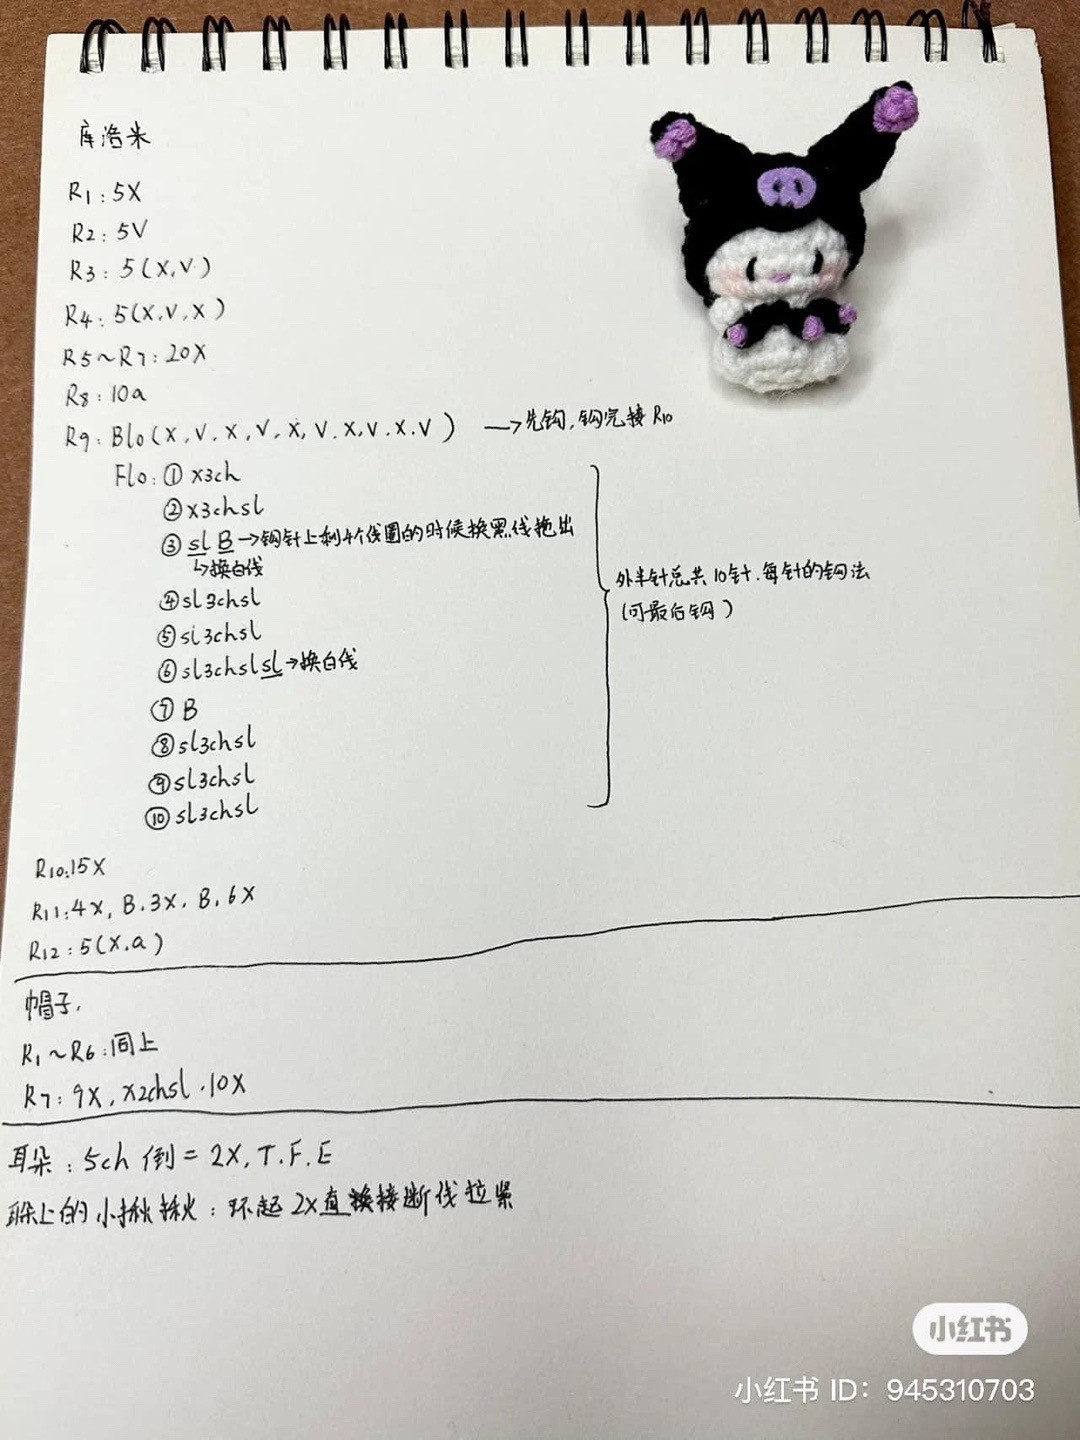 库洛米
R1:5X
R2:5V
R3:5(X,V)
R4:5(X,V,X)
R5~R7:20X
R8:10a
R9:Blo(X,V,X,V,X,V,X,V,X,V) →先钩,钩完接R10
Flo:①x3ch
②x3chsl
③sl B→钩针上剩4个线圈的时候换黑线拖出
↳换白线
④sl3chsl
⑤sl3chsl
⑥sl3chslsl→换白线
⑦B
⑧sl3chsl
⑨sl3chsl
⑩sl3chsl
外半针总共10针,每针的钩法
(可最后钩)
R10:15X
R11:4X,B,3X,B,6X
R12:5(X,a)
帽子,
R1~R6:同上
R7:9X,X2chsl,10X
耳朵:5ch 倒=2X,T,F,E
耳朵上的小揪揪:环起2X直接断线拉紧
小红书
小红书 ID:945310703